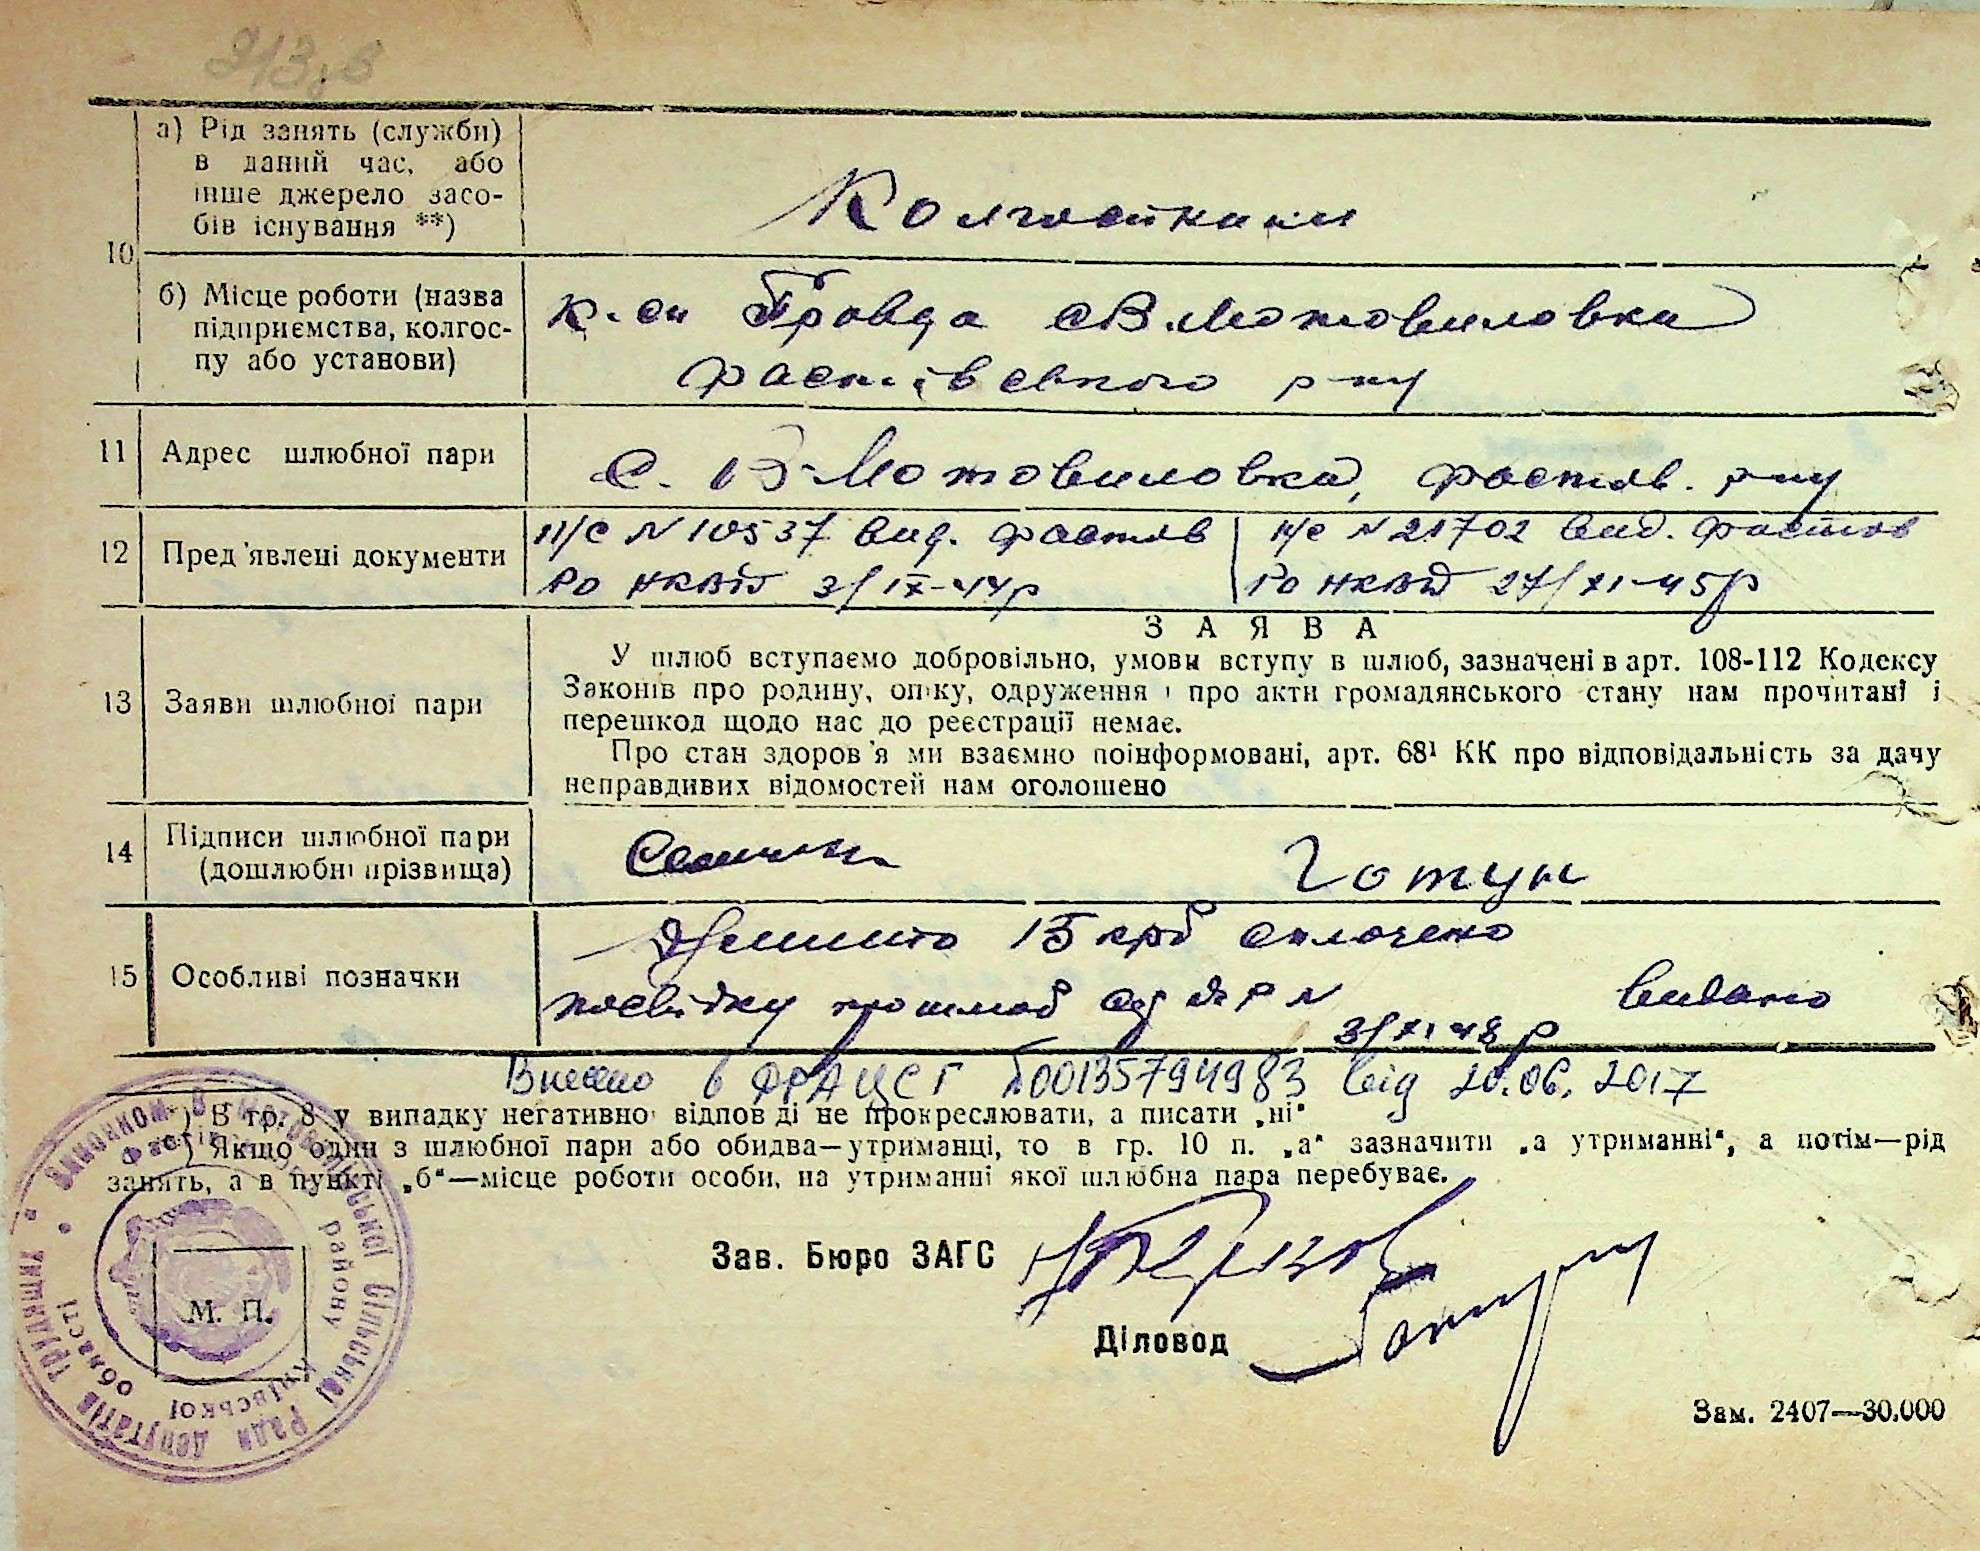 213.в
10
а) Рід занять (служби)
в даний час, або
інше джерело засо-
бів існування **)
Колгоспники
б) Місце роботи (назва
підприємства, колгос-
пу або установи)
Правда с В. Мотовиловка
Фастівського р-ну
11 Адрес шлюбної пари
с. В-Мотовиловка, Фастів. р-ну
12 Пред'явлені документи
п/с N 10537 вид. Фастів | п/с N 21702 вид. Фастов
РО НКВД 3/IX-44р | РО НКВД 27/XI-45р
13 Заяви шлюбної пари
З А Я В А
У шлюб вступаємо добровільно, умови вступу в шлюб, зазначені в арт. 108-112 Кодексу
Законів про родину, опіку, одруження і про акти громадянського стану нам прочитані і
перешкод щодо нас до реєстрації немає.
Про стан здоров'я ми взаємно поінформовані, арт. 68¹ КК про відповідальність за дачу
неправдивих відомостей нам оголошено
14 Підписи шлюбної пари
(дошлюбні прізвища)
Готун
15 Особливі позначки
15 крб сплочено
посвідку про шлюб N видано
3/XI 48 р
Внесено в ДРАЦСГ 00135794983 від 20.06.2017
*) В гр. 8 у випадку негативної відповіді не прокреслювати, а писати „ні“
**) Якщо один з шлюбної пари або обидва—утриманці, то в гр. 10 п. „а“ зазначити „а утриманні“, а потім—рід
занять, а в пункті „б“—місце роботи особи, на утриманні якої шлюбна пара перебуває.
Зав. Бюро ЗАГС
Діловод
М. П.
Виконком В Мотовилівської Сільської Ради Депутатів Трудящих
Фастівського району Київської області
Зам. 2407—30.000